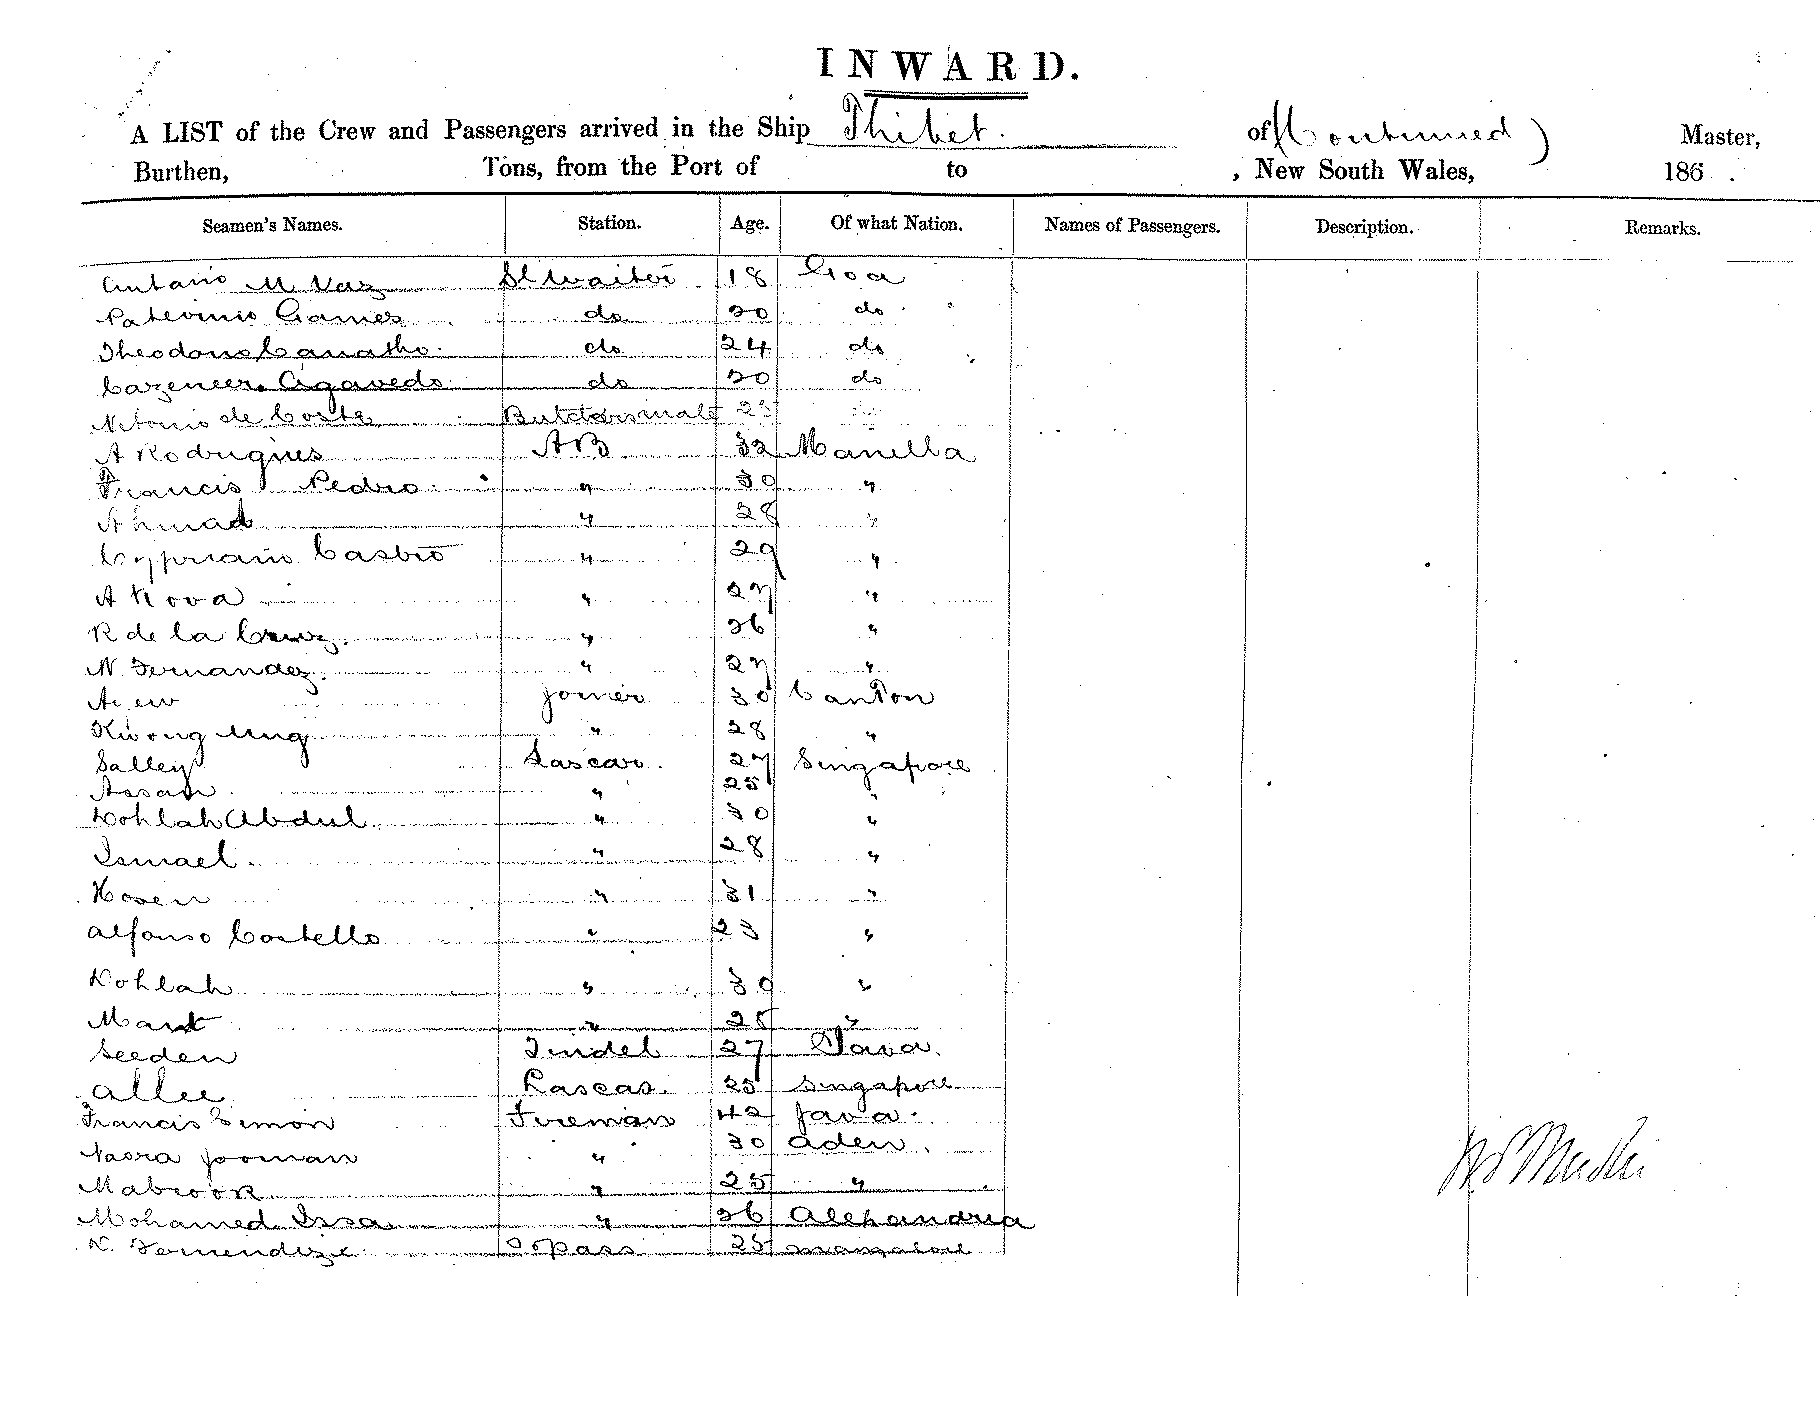 INWARD.
A LIST of the Crew and Passengers arrived in the Ship Thibet. of (Continued) Master,
Burthen, Tons, from the Port of to , New South Wales, 186 .
Seamen's Names. Station. Age. Of what Nation. Names of Passengers. Description. Remarks.
Antanio M Vaz St Waiter 18 Goa
Gamez do 20 do
do 24 do
do 20 do
de Costa Butchers mate 25
A Rodrigues AB 32 Manilla
Francis Pedro " 30 "
Ahmad " 28 "
Cypriano Castro " 29 "
A Rova " 27 "
R de la Cruz " 26 "
N Fernandez. " 27 "
Joiner 30 Canton
Kwong Ung " 28 "
Salley Lascar. 27 Singapore
Assan " 25 "
Dohlah Abdul " 30 "
Ismael. " 28 "
Hosen " 31 "
Alfonso Costello " 23 "
Dohlah " 30 "
" "
Seeden Tindel 27 Java.
Allee Lascar. 25 Singapore
Francis Simon Fireman 42 Java.
Jooman " 30 Aden.
Mabrook " 25 "
Mohamed Issa " 26 Alexandria
Topass 25 Mangalore